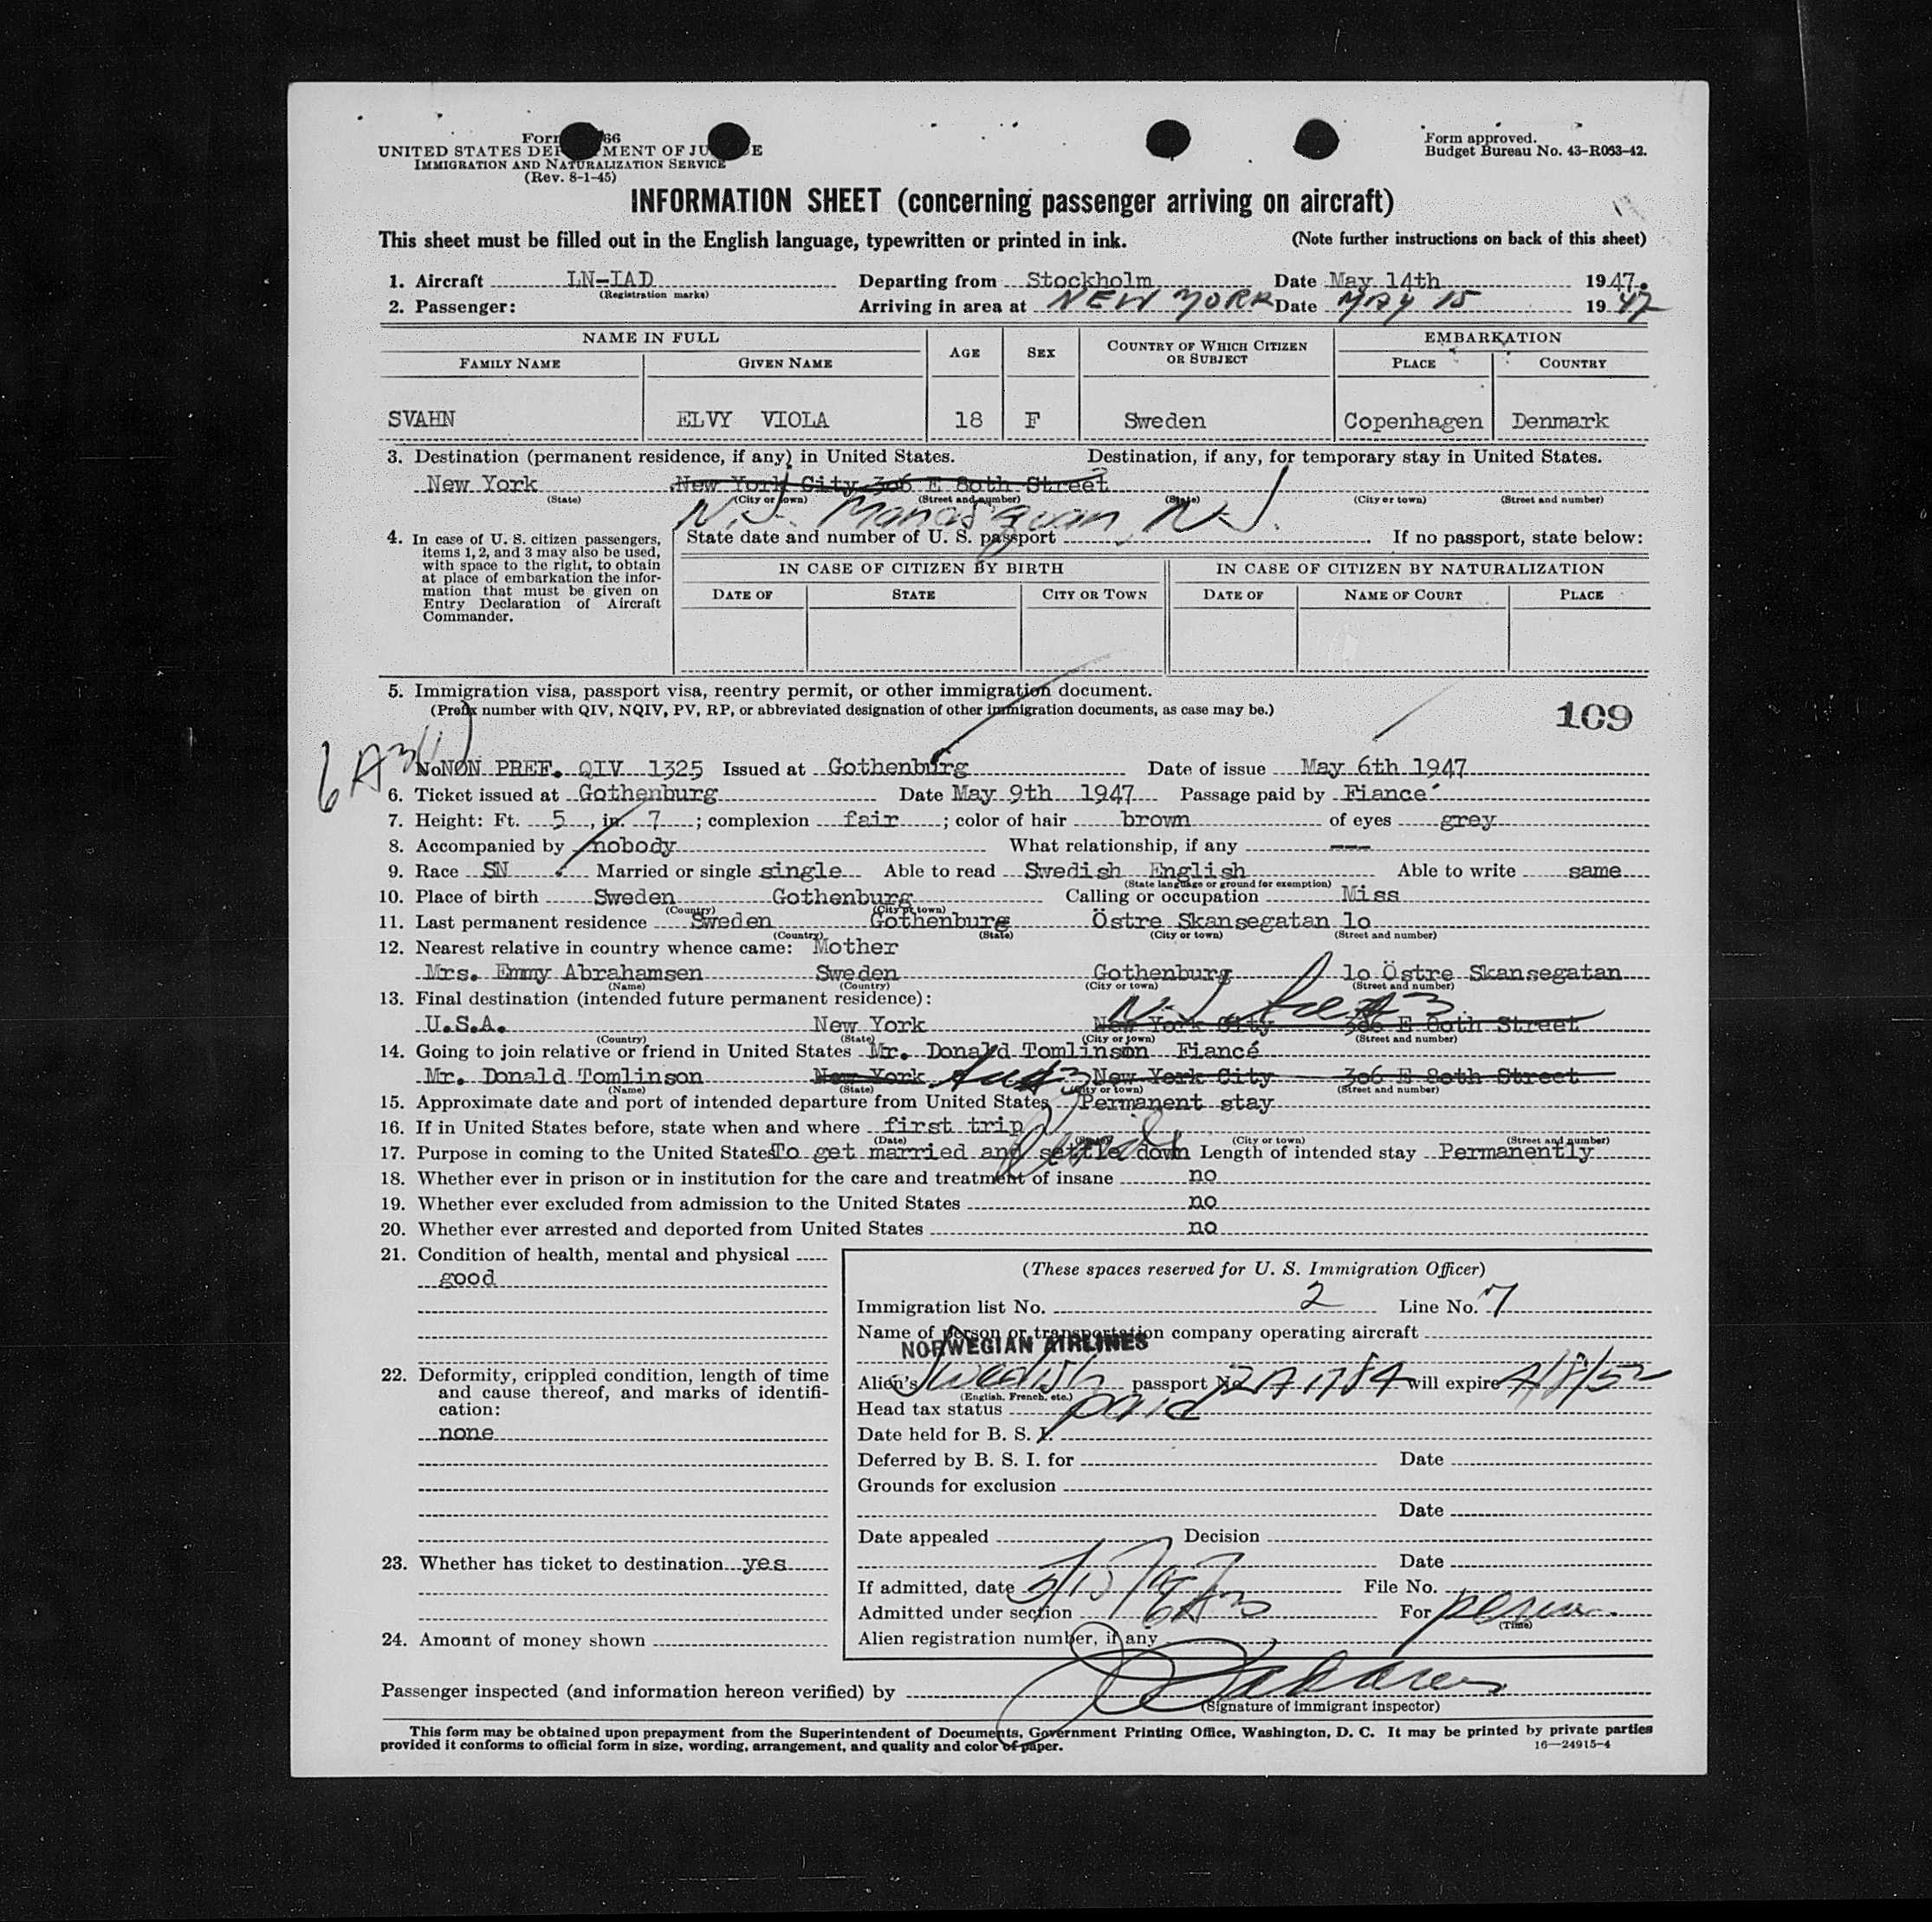 Form 66
UNITED STATES DEP MENT OF JU E
IMMIGRATION AND NATURALIZATION SERVICE
(Rev. 8-1-45)
Form approved.
Budget Bureau No. 43-R063-42.
INFORMATION SHEET (concerning passenger arriving on aircraft)
This sheet must be filled out in the English language, typewritten or printed in ink. (Note further instructions on back of this sheet)
1. Aircraft LN-IAD Departing from Stockholm Date May 14th 1947.
(Registration marks)
2. Passenger: Arriving in area at NEW YORK Date MAY 15 1947
NAME IN FULL AGE SEX COUNTRY OF WHICH CITIZEN OR SUBJECT EMBARKATION
FAMILY NAME GIVEN NAME PLACE COUNTRY
SVAHN ELVY VIOLA 18 F Sweden Copenhagen Denmark
3. Destination (permanent residence, if any) in United States. Destination, if any, for temporary stay in United States.
New York New York City 306 E 80th Street
(State) (City or town) (Street and number) (State) (City or town) (Street and number)
N.J. Manasquan N.J.
4. In case of U. S. citizen passengers, items 1, 2, and 3 may also be used, with space to the right, to obtain at place of embarkation the information that must be given on Entry Declaration of Aircraft Commander.
State date and number of U. S. passport If no passport, state below:
IN CASE OF CITIZEN BY BIRTH IN CASE OF CITIZEN BY NATURALIZATION
DATE OF STATE CITY OR TOWN DATE OF NAME OF COURT PLACE
5. Immigration visa, passport visa, reentry permit, or other immigration document.
(Prefix number with QIV, NQIV, PV, RP, or abbreviated designation of other immigration documents, as case may be.)
109
6A3(1)
No. NON PREF. QIV 1325 Issued at Gothenburg Date of issue May 6th 1947
6. Ticket issued at Gothenburg Date May 9th 1947 Passage paid by Fiancé
7. Height: Ft. 5, in. 7; complexion fair; color of hair brown of eyes grey
8. Accompanied by nobody What relationship, if any ---
9. Race SN Married or single single Able to read Swedish English Able to write same
(State language or ground for exemption)
10. Place of birth Sweden Gothenburg Calling or occupation Miss
(Country) (City or town)
11. Last permanent residence Sweden Gothenburg Östre Skansegatan 1o
(Country) (State) (City or town) (Street and number)
12. Nearest relative in country whence came: Mother
Mrs. Emmy Abrahamsen Sweden Gothenburg 1o Östre Skansegatan
(Name) (Country) (City or town) (Street and number)
13. Final destination (intended future permanent residence):
N.J.
U.S.A. New York New York City 306 E 80th Street
(Country) (State) (City or town) (Street and number)
14. Going to join relative or friend in United States Mr. Donald Tomlinson Fiancé
Mr. Donald Tomlinson New York New York City 3o6 E 8oth Street
(Name) (State) (City or town) (Street and number)
15. Approximate date and port of intended departure from United States Permanent stay
16. If in United States before, state when and where first trip
(Date) (State) (City or town) (Street and number)
17. Purpose in coming to the United States To get married and settle down Length of intended stay Permanently
18. Whether ever in prison or in institution for the care and treatment of insane no
19. Whether ever excluded from admission to the United States no
20. Whether ever arrested and deported from United States no
21. Condition of health, mental and physical
good
22. Deformity, crippled condition, length of time and cause thereof, and marks of identification:
none
23. Whether has ticket to destination yes
24. Amount of money shown
(These spaces reserved for U. S. Immigration Officer)
Immigration list No. 2 Line No. 7
Name of person or transportation company operating aircraft
NORWEGIAN AIRLINES
Alien's Swedish passport No. 2A1784 will expire 4/8/52
(English, French, etc.)
Head tax status paid
Date held for B. S. I.
Deferred by B. S. I. for Date
Grounds for exclusion
Date
Date appealed Decision
Date
If admitted, date 5/15/47 File No.
Admitted under section 6A3 For perm.
(Time)
Alien registration number, if any
Passenger inspected (and information hereon verified) by
(Signature of immigrant inspector)
This form may be obtained upon prepayment from the Superintendent of Documents, Government Printing Office, Washington, D. C. It may be printed by private parties
provided it conforms to official form in size, wording, arrangement, and quality and color of paper. 16—24915-4